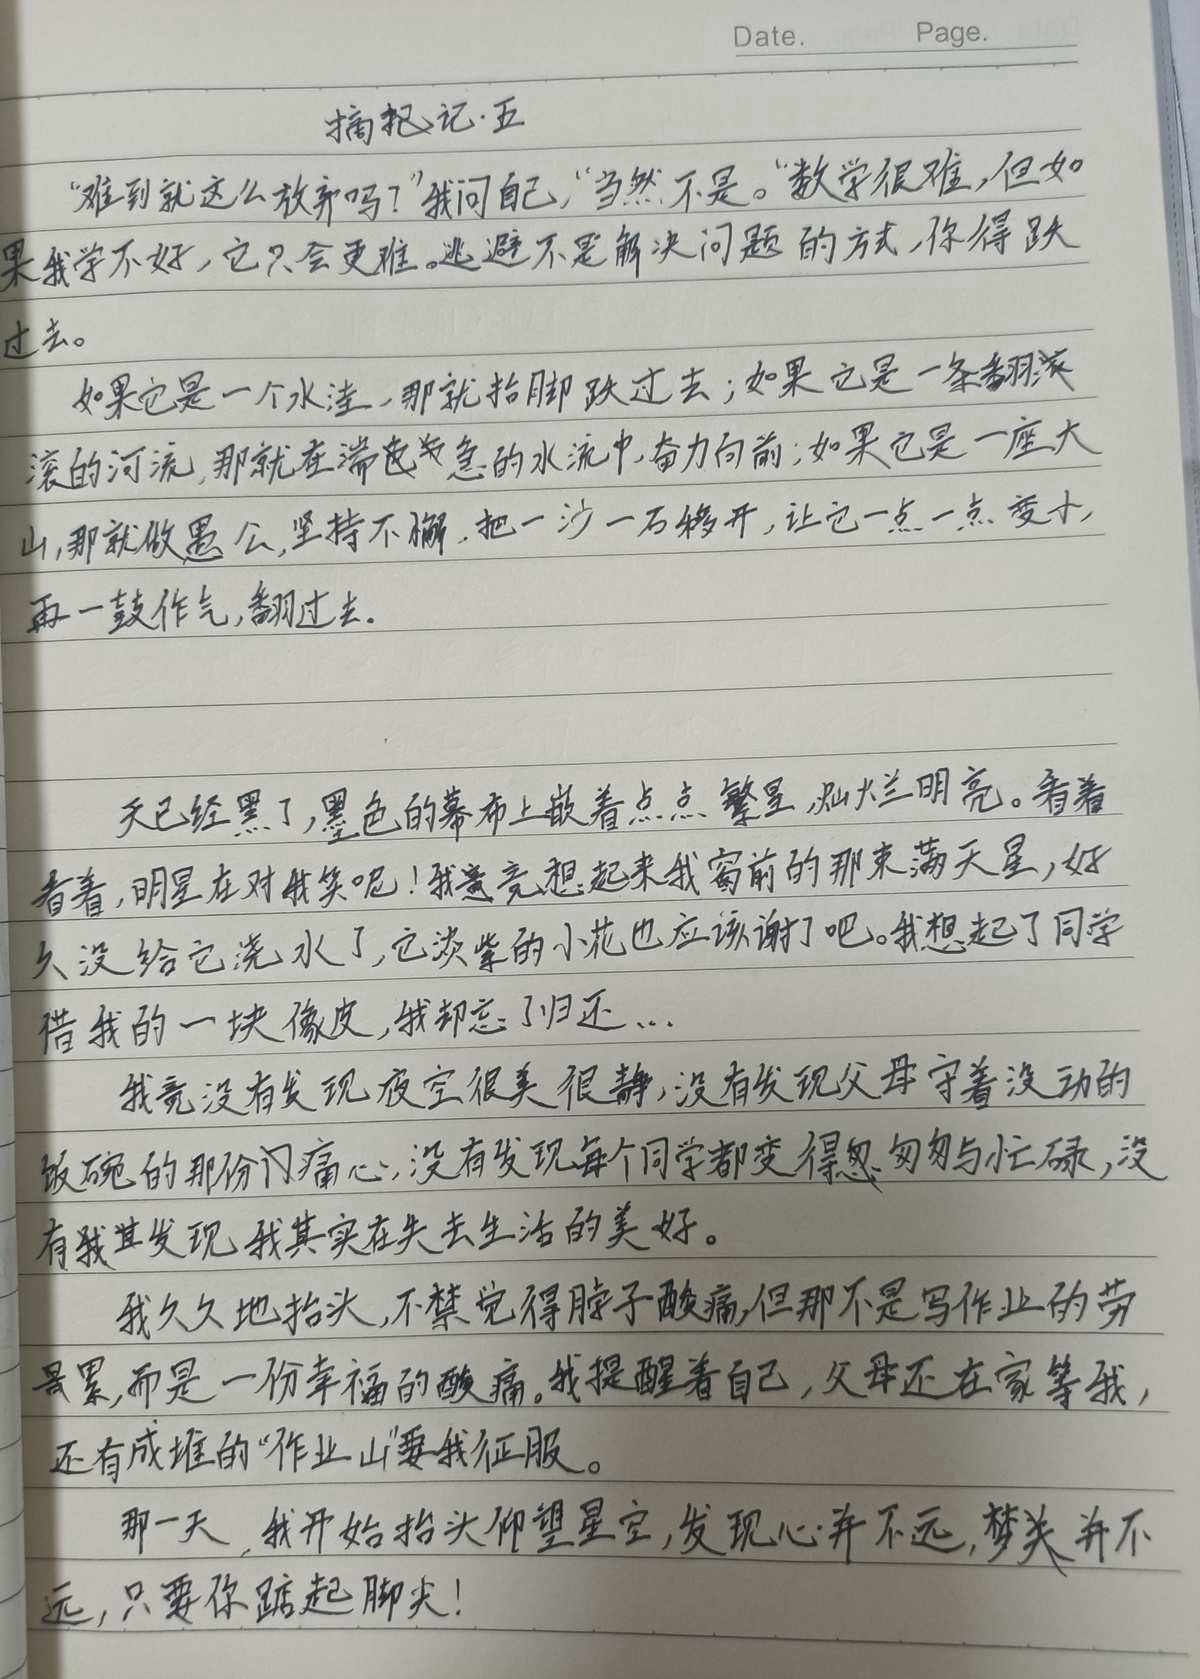 Date. Page.
摘抱记·五
“难到就这么放弃吗？”我问自己，“当然不是。”数学很难，但如
果我学不好，它只会更难。逃避不是解决问题的方式，你得跃
过去。
如果它是一个水洼，那就抬脚跃过去；如果它是一条翻滚
滚的河流，那就在湍急的水流中，奋力向前；如果它是一座大
山，那就做愚公，坚持不懈，把一沙一石移开，让它一点一点变小，
再一鼓作气，翻过去。
天已经黑了，墨色的幕布上嵌着点点繁星，灿烂明亮。看着
看着，明星在对我笑呢！我竟想起来我窗前的那束满天星，好
久没给它浇水了，它淡紫的小花也应该谢了吧。我想起了同学
借我的一块像皮，我却忘了归还…
我竟没有发现夜空很美很静，没有发现父母守着没动的
饭碗的那份痛心，没有发现每个同学都变得匆匆与忙碌，没
有发现我其实在失去生活的美好。
我久久地抬头，不禁觉得脖子酸痛，但那不是写作业的劳
累，而是一份幸福的酸痛。我提醒着自己，父母还在家等我，
还有成堆的“作业山”要我征服。
那一天，我开始抬头仰望星空，发现心并不远，梦并不
远，只要你踮起脚尖！